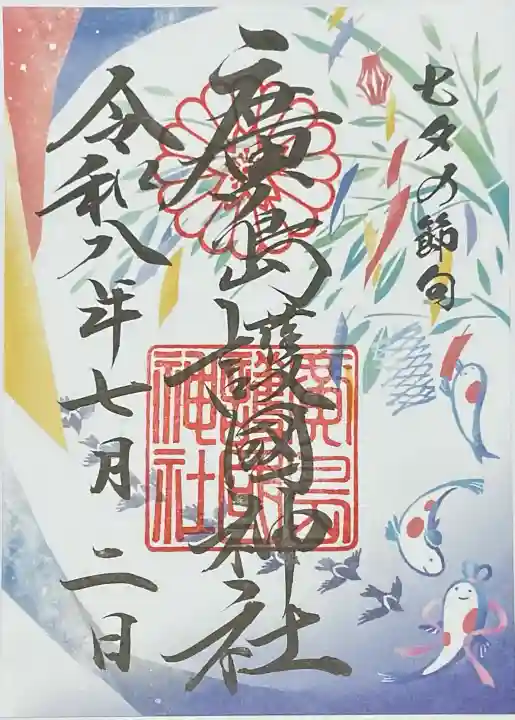 七夕の節句
廣島護國神社
廣島
護國
神社
令和八年七月二日